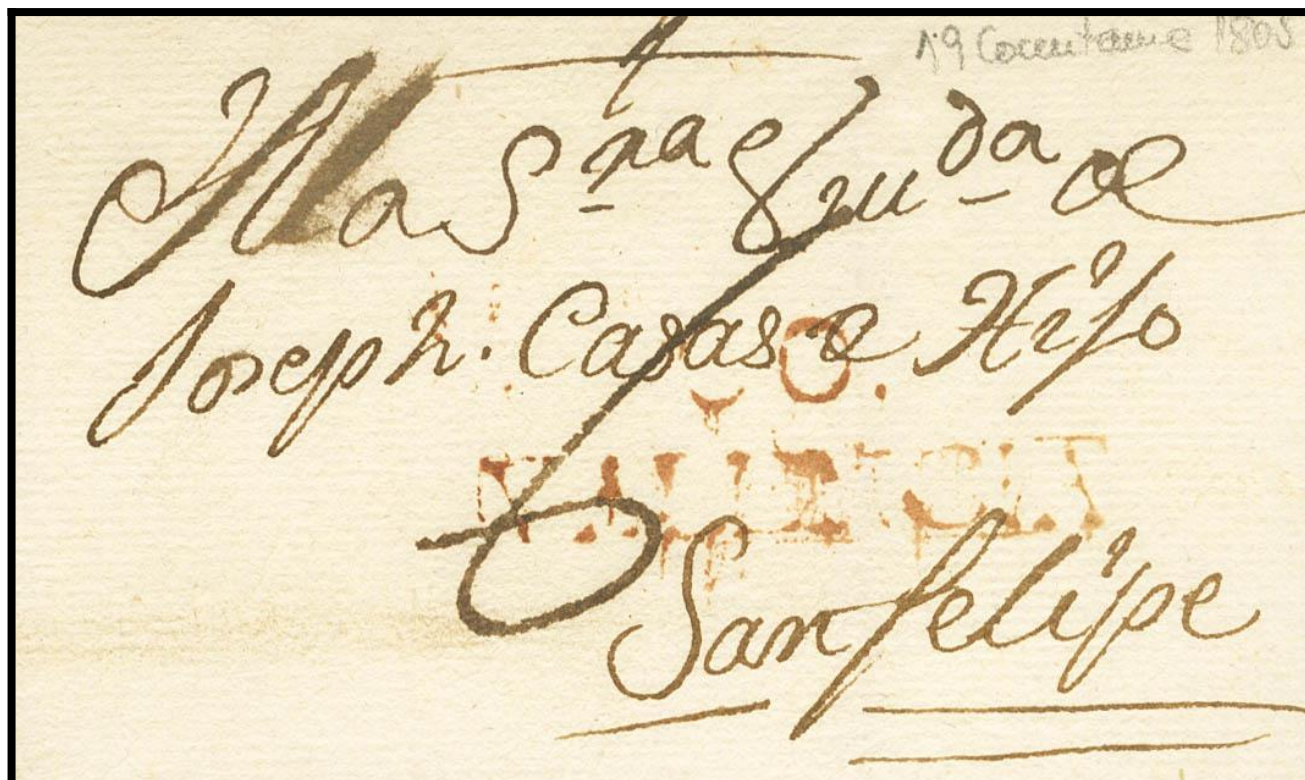 19 Cocentaina 1805
A la S.ra Viu.da de
Joseph. Casas e Hijo
O.
VALENCIA
San felipe